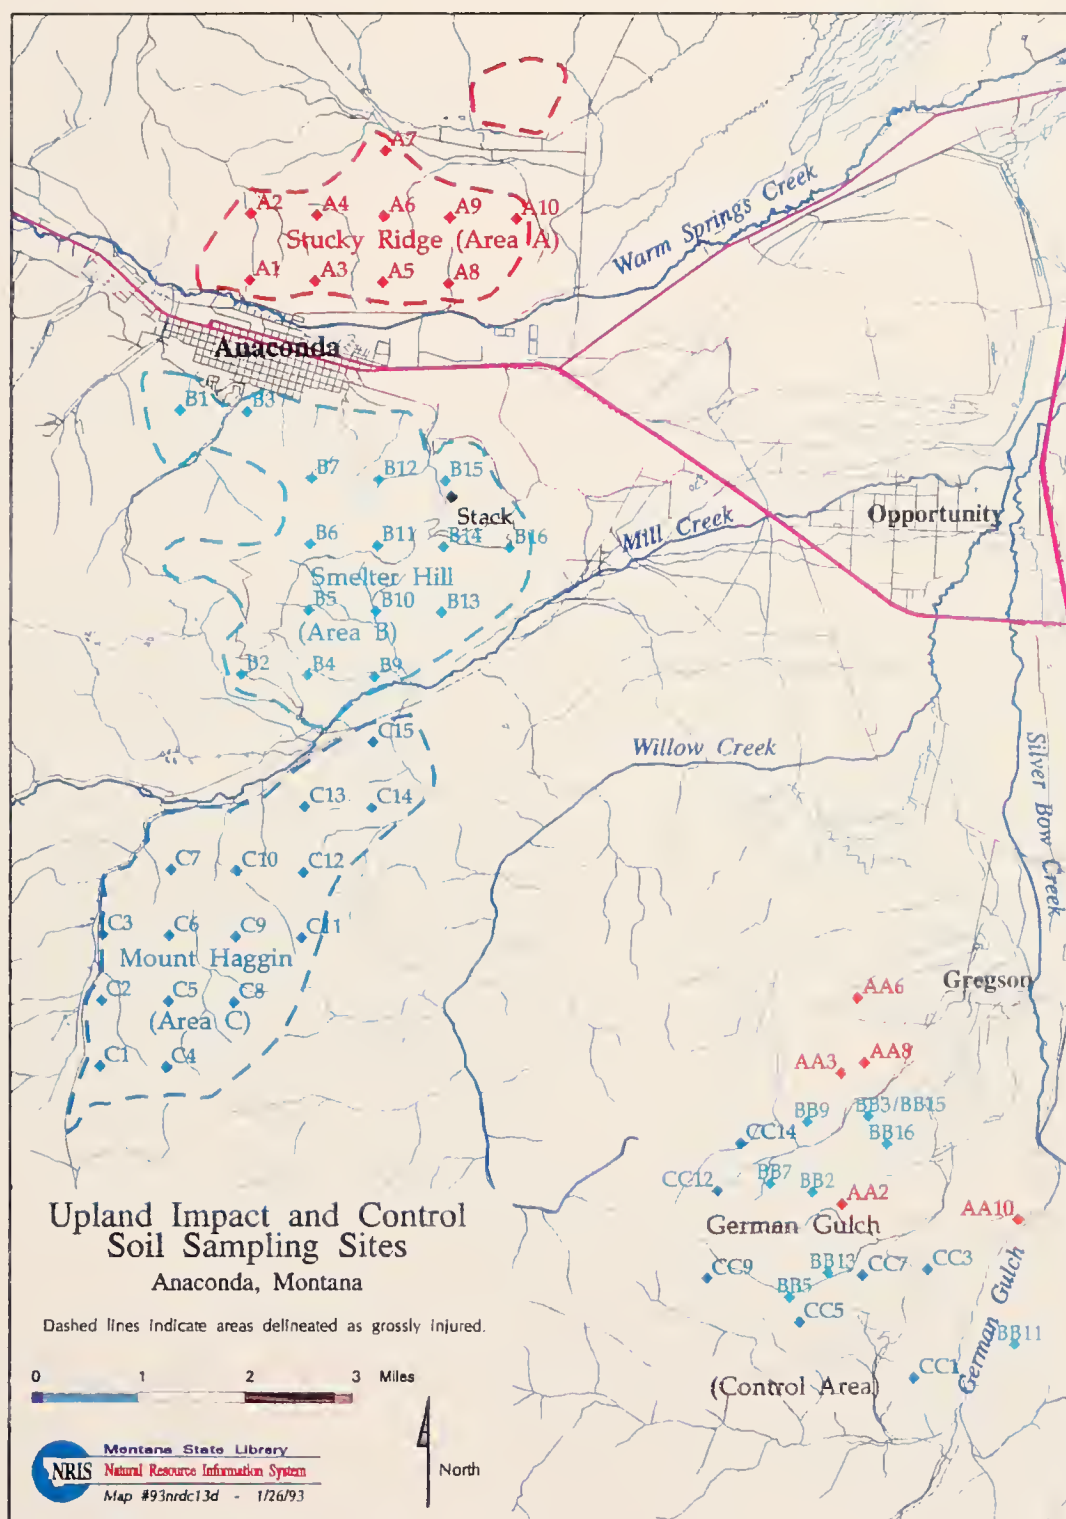 A7
A2
A4
A6
A9
A10
Stucky Ridge (Area A)
A1
A3
A5
A8
Warm Springs Creek
Anaconda
B1
B3
B7
B12
B15
Stack
B6
B11
B14
B16
Mill Creek
Opportunity
Smelter Hill
B5
B10
B13
(Area B)
B2
B4
B9
C15
Willow Creek
Silver Bow Creek
C13
C14
C7
C10
C12
C3
C6
C9
C11
Mount Haggin
C2
C5
C8
(Area C)
C1
C4
Gregson
AA6
AA3
AA8
BB9
BB3/BB15
CC14
BB16
CC12
BB7
BB2
AA2
AA10
German Gulch
CC9
BB13
CC7
CC3
BB5
CC5
German Gulch
BB11
CC1
(Control Area)
Upland Impact and Control
Soil Sampling Sites
Anaconda, Montana
Dashed lines indicate areas delineated as grossly injured.
0 1 2 3 Miles
North
NRIS
Montana State Library
Natural Resource Information System
Map #93nrdc13d - 1/26/93